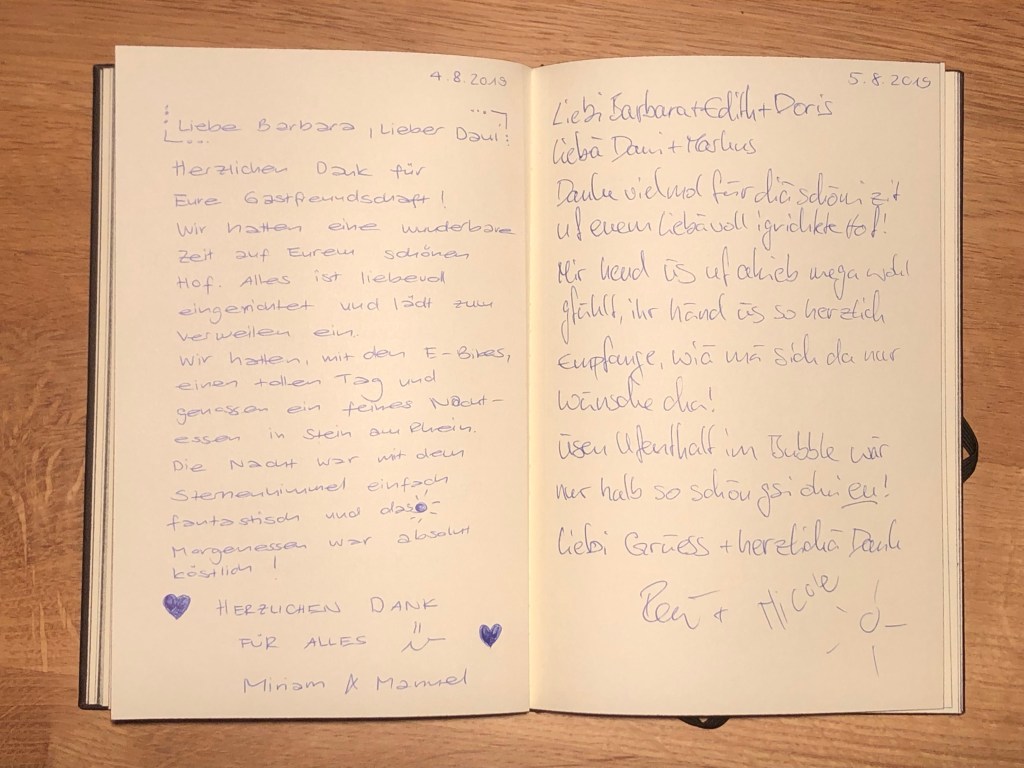 4.8.2019
Liebe Barbara, Lieber Dani:
Herzlichen Dank für
Eure Gastfreundschaft!
Wir hatten eine wunderbare
Zeit auf Eurem schönen
Hof. Alles ist liebevol
eingerichtet und lädt zum
verweilen ein.
Wir hatten, mit den E-Bikes,
einen tollen Tag und
genossen ein feines Nacht-
essen in Stein am Rhein.
Die Nacht war mit dem
Sternenhimmel einfach
fantastisch und das
Morgenessen war absolut
köstlich!
HERZLICHEN DANK
FÜR ALLES
Miriam & Manuel
5.8.2019
Liebi Barbara+Edith+Doris
Liebä Dani+Markus
Danke vielmol für diä schöni zit
uf euem Liebävoll igrichkte Hof!
Mir hend üs uf ahieb mega wohl
gfühlt, ihr händ üs so herzlich
Empfange, wiä mä sich da nur
wünsche cha!
Üsen Ufenthalt im Bubble wär
nur halb so schön gsi ohni eu!
Liebi Grüess + herzlichä Dank
+ Nicole